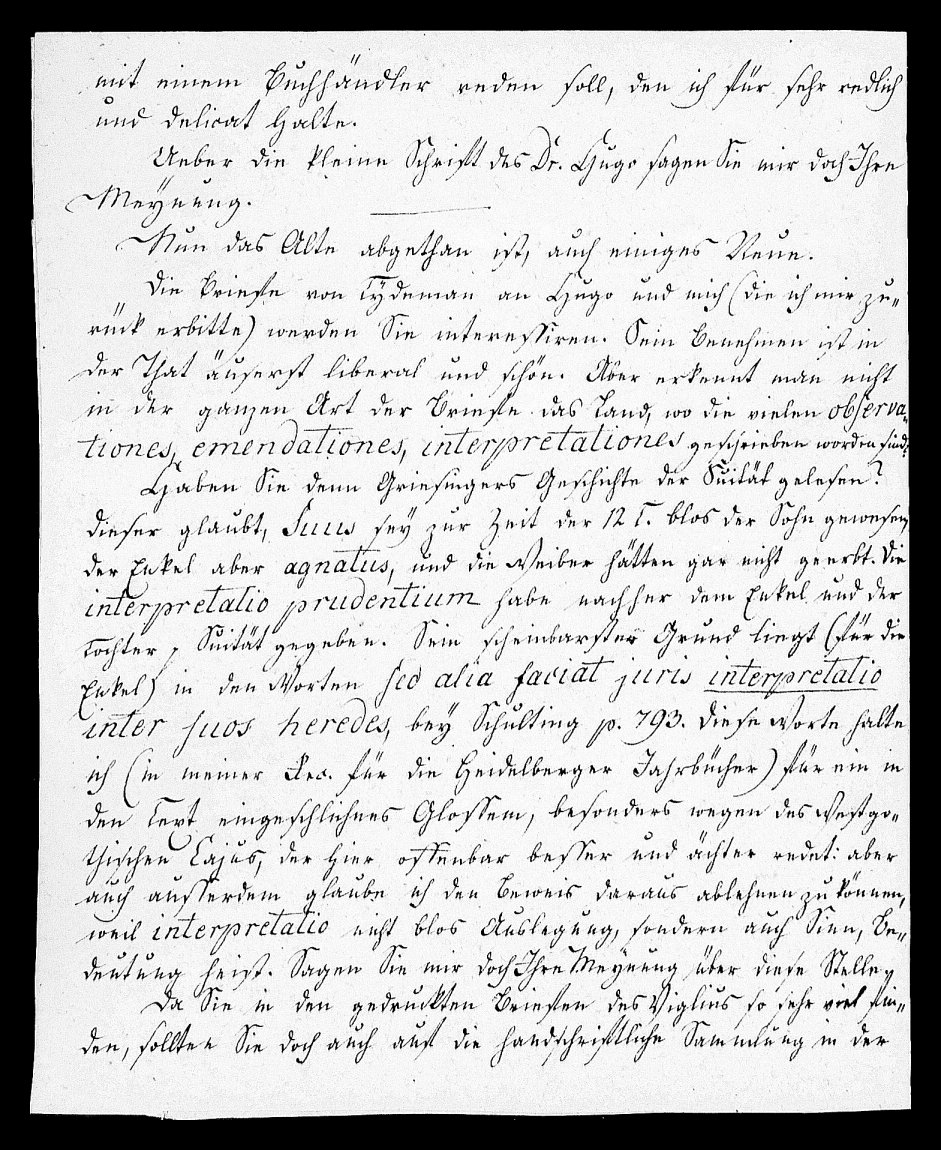 mit einem Buchhändler reden soll, den ich für sehr redlich
und delicat halte.
Ueber die kleine Schrift des Dr. Hugo sagen Sie mir doch Ihre
Meynung.
Nun das Alte abgethan ist, auch einiges Neue.
Die Briefe von Tydeman an Hugo und mich (die ich mir zu-
rück erbitte) werden Sie interessiren. Sein Benehmen ist in
der That äuserst liberal und schön. Aber erkennt man nicht
in der ganzen Art der Briefe das Land, wo die vielen observa-
tiones, emendationes, interpretationes geschrieben worden sind?
Haben Sie denn Griesingers Geschichte der Suität gelesen?
Dieser glaubt, Suus sey zur Zeit der 12 T. blos der Sohn gewesen,
der Enkel aber agnatus, und die Weiber hätten gar nicht geerbt. Die
interpretatio prudentium habe nachher dem Enkel und der
Tochter Suität gegeben. Sein scheinbarster Grund liegt (für die
Enkel) in den Worten sed alia faciat juris interpretatio
inter suos heredes, bey Schulting p. 793. Diese Worte halte
ich (in meiner Rec. für die Heidelberger Jahrbücher) für ein in
den Text eingeschlichnes Glossem, besonders wegen des Westgo-
thischen Cajus, der hier offenbar besser und ächter redet: aber
auch ausserdem glaube ich den Beweis daraus ablehnen zu können,
weil interpretatio nicht blos Auslegung, sondern auch Sinn, Be-
deutung heist. Sagen Sie mir doch Ihre Meynung über diese Stelle.
Da Sie in den gedruckten Briefen des Viglius so sehr viel fin-
den, sollten Sie doch auch auf die handschriftliche Sammlung in der